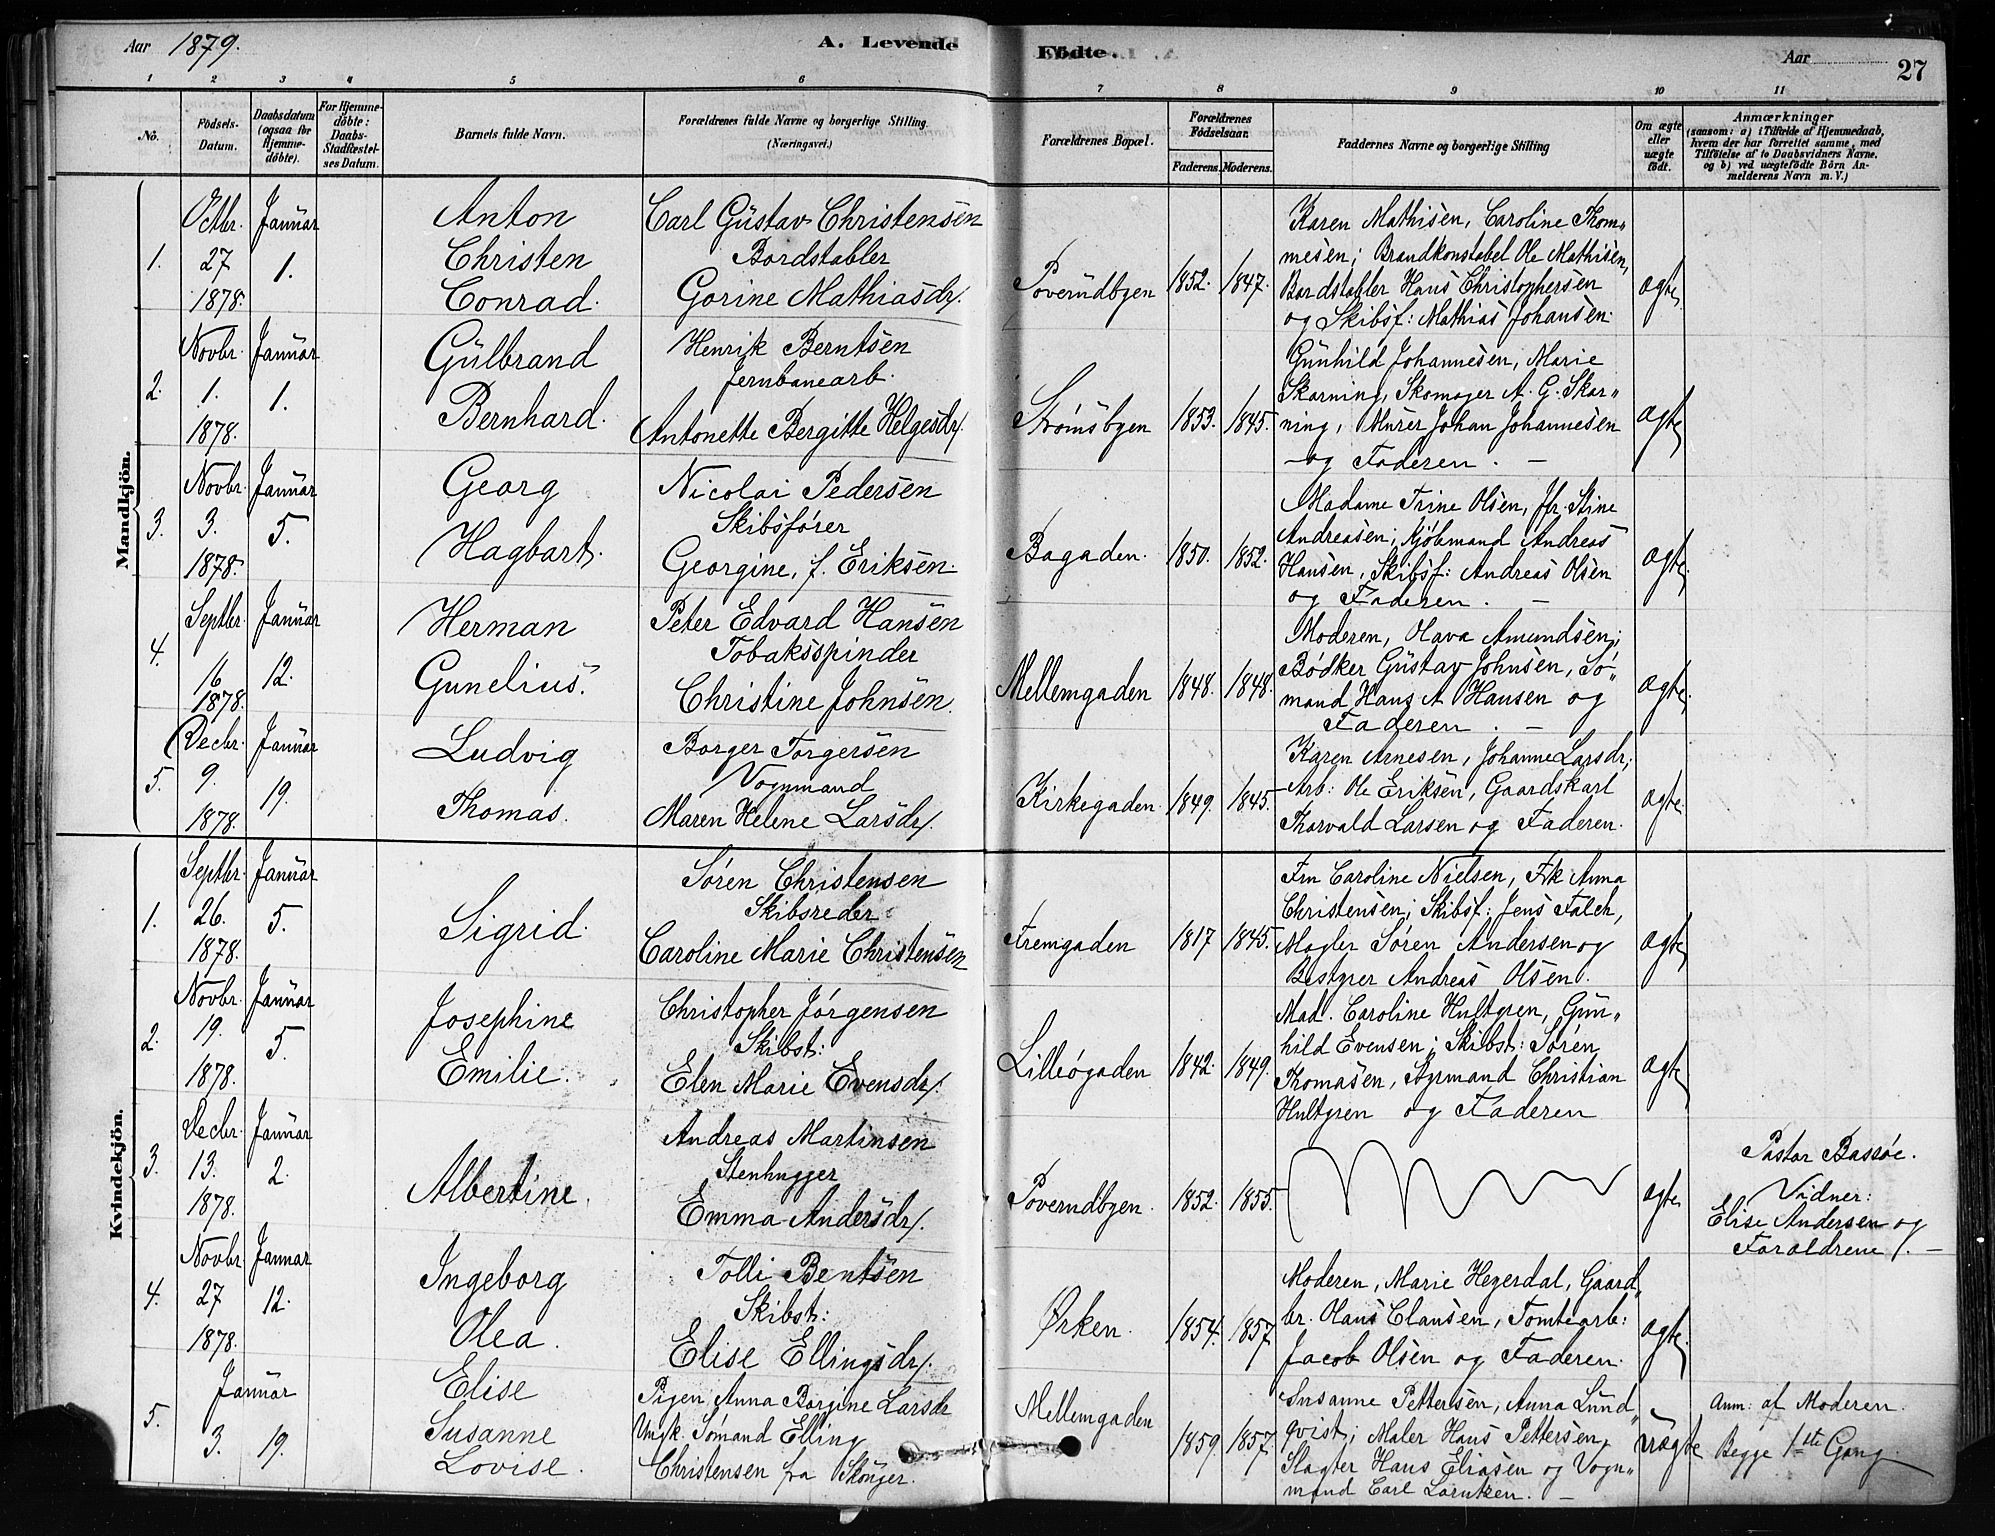 Aar 1879.
A. Levende Födte.
Aar
27
1 2 3 4 5 6 7 8 9 10 11
No.
Födsels-Datum.
Daabsdatum (ogsaa for Hjemme-döbte).
For Hjemme-döbte: Daabs-Stadfæstel-ses Datum.
Barnets fulde Navn.
Forældrenes fulde Navne og borgerlige Stilling (Næringsvei.)
Forældrenes Bopæl.
Forældrenes Födselsaar.
Faderens. Moderens.
Faddernes Navne og borgerlige Stilling
Om ægte eller uægte födt.
Anmærkninger
(saasom: a) i Tilfælde af Hjemmedaab,
hvem der har forrettet samme, med
Tilföielse af to Daabsvidners Navne,
og b) ved uægtefödte Börn An-
melderens Navn m. V.)
Mandkjön.
1.
Octbr. 27 1878.
Januar 1.
Anton
Christen
Conrad.
Carl Gustav Christensen
Bordstabler
Gorine Mathiasdr.
Poverudbyen
1852. 1847.
Karen Mathisen, Caroline Thom„
mesen; Brandkonstabel Ole Mathisen,
Bordstabler Hans Christophersen
og Skibsf: Mathias Johansen.
ægte
2.
Novbr. 1. 1878.
Januar 1.
Gulbrand
Bernhard.
Henrik Berntsen
Jernbanearb.
Antonette Bergitte Helgesdr.
Strømsbyen
1853. 1845.
Gunhild Johannesen, Marie
Skarning, Skomager A. G. Skar„
ning, Murer Johan Johannesen
og Faderen. —
ægte
3.
Novbr. 3. 1878.
Januar 5.
Georg
Hagbart.
Nicolai Pedersen
Skibsfører
Georgine, f. Eriksen.
Bagaden.
1850. 1852.
Madame Trine Olsen, Jfr. Stine
Andreasen; Kjøbmand Andreas
Hansen, Skibsf: Andreas Olsen
og Faderen. —
ægte
4.
Septbr. 16 1878.
Januar 12.
Herman
Gunelius.
Peter Edvard Hansen
Tobaksspinder
Christine Johnsen.
Mellemgaden
1848. 1848.
Moderen, Olava Amundsen;
Bødker Gustav Johnsen, Sø„
mand Hans A Hansen og
Faderen. —
ægte.
5.
Decbr. 9. 1878.
Januar 19.
Ludvig
Thomas.
Borger Torgersen
Vognmand
Maren Helene Larsdr.
Kirkegaden.
1849. 1845.
Karen Arnesen, Johanne Larsdr;
Arb: Ole Eriksen, Gaardskarl
Thorvald Larsen og Faderen.
ægte.
Kvindekjön.
1.
Septbr. 26. 1878.
Januar 5.
Sigrid.
Søren Christensen
Skibsreder
Caroline Marie Christensen
Fremgaden
1817 1845.
Fru Caroline Nielsen, Frk Anna
Christensen; Skibsf: Jens Falch,
Mægler Søren Andersen og
Bestyrer Andreas Olsen.
ægte
2.
Novbr. 19. 1878.
Januar 5.
Josephine
Emilie.
Christopher Jørgensen
Skibst:
Elen Marie Evensdr.
Lilleøgaden
1842. 1849.
Mad. Caroline Hultgren, Gun„
hild Evensen; Skibst: Søren
Thomasen, Styrmand Christian
Hultgren og Faderen
ægte
3.
Decbr. 13. 1878.
Januar 2.
Albertine.
Andreas Martinsen
Stenhugger
Emma Andersdr.
Poverudbyen.
1852. 1855.
ægte
Pastor Bassøe.
Vidner:
Elise Andersen og
Forældrene. —
4.
Novbr. 27 1878.
Januar 12.
Ingeborg
Olea.
Tolli Bentsen
Skibst:
Elise Ellingsdr.
Ørken.
1854. 1857
Moderen, Marie Hegerdal, Gaard„
br. Olaus Clausen, Tomtearb:
Jacob Olsen og Faderen.
ægte.
5.
Januar
3. 19.
Elise
Susanne
Lovise.
Pigen Anna Borgine Larsdr
Ungk. Sømand Elling
Christensen fra
Mellemgaden
1859. 1857.
Susanne Pettersen, Anna Lund„
qvist; Maler Hans Pettersen,
Slagter Hans Eliasen og Vogn„
mand Carl Lorntzen. —
uægte
Anm: af Moderen.
Begge 1ste Gang.